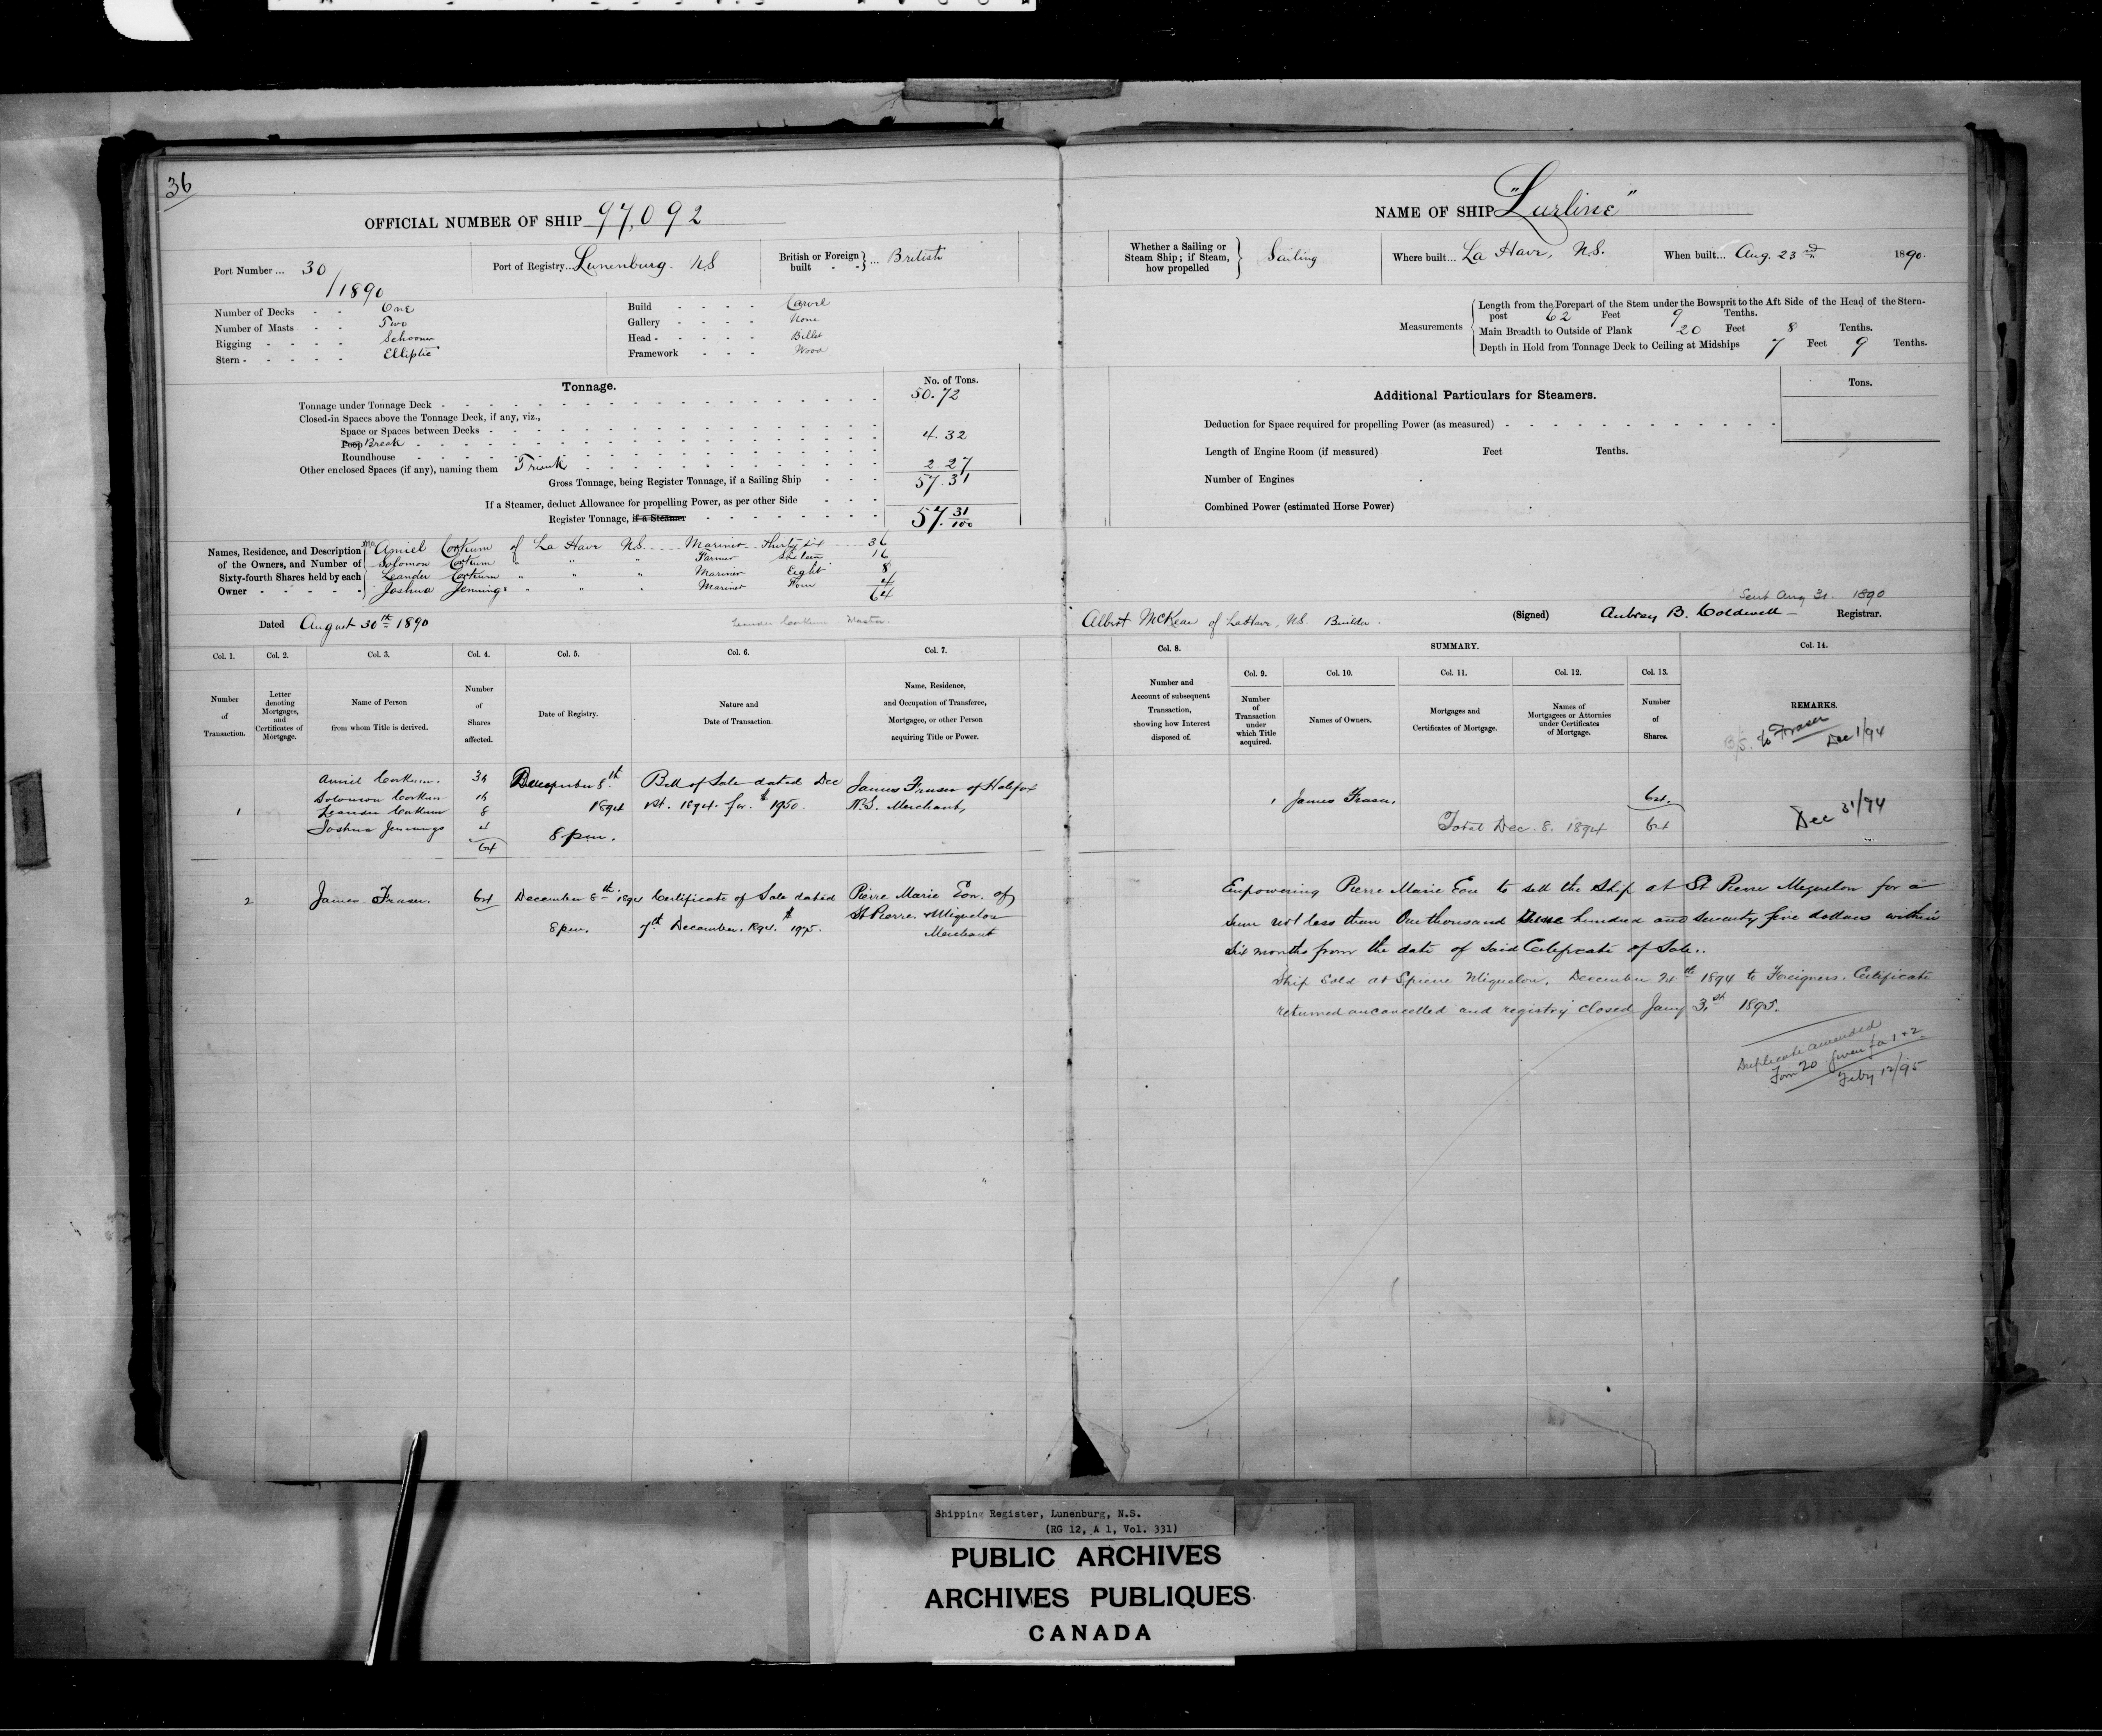 36
OFFICIAL NUMBER OF SHIP 97,092
Port Number ... 30/1890
Port of Registry... Lunenburg. NS
British or Foreign built ... British
Number of Decks - - One
Number of Masts - - Two
Rigging - - - - - Schooner
Stern - - - - - Elliptic
Build - - - - Carvel
Gallery - - - - None
Head - - - - - Billet
Framework - - - Wood
Tonnage.
No. of Tons.
Tonnage under Tonnage Deck 50.72
Closed-in Spaces above the Tonnage Deck, if any, viz.,
Space or Spaces between Decks
Poop Break 4.32
Roundhouse
Other enclosed Spaces (if any), naming them Trunk 2.27
Gross Tonnage, being Register Tonnage, if a Sailing Ship 57.31
If a Steamer, deduct Allowance for propelling Power, as per other Side
Register Tonnage, if a Steamer 57. 31/100
Names, Residence, and Description of the Owners, and Number of Sixty-fourth Shares held by each Owner
Amiel Corkum of La Have N.S. Mariner thirty six 36
Solomon Corkum " " " Farmer Sixteen 16
Leander Corkum " " " Mariner Eight 8
Joshua Jennings " " " Mariner Four 4
64
Dated August 30th 1890
Leander Corkum Master.
Col. 1. Col. 2. Col. 3. Col. 4. Col. 5. Col. 6. Col. 7.
Number of Transaction.
Letter denoting Mortgages, and Certificates of Mortgage.
Name of Person from whom Title is derived.
Number of Shares affected.
Date of Registry.
Nature and Date of Transaction.
Name, Residence, and Occupation of Transferee, Mortgagee, or other Person acquiring Title or Power.
1
Amiel Corkum. 36
Solomon Corkum 16
Leander Corkum 8
Joshua Jennings 4
64
December 8th
1894
8 pm.
Bill of Sale dated Dec
1st. 1894. for $1950.
James Fraser of Halifax
N.S. Merchant,
2
James Fraser. 64
December 8th 1894
8 pm.
Certificate of Sale dated
7th December. 1894. $1975.
Pierre Marie Eon. of
St Pierre. & Miquelon
Merchant
NAME OF SHIP "Lurline"
Whether a Sailing or Steam Ship; if Steam, how propelled Sailing
Where built... La Have, N.S.
When built... Aug. 23rd 1890.
Measurements
Length from the Forepart of the Stem under the Bowsprit to the Aft Side of the Head of the Stern-
post 62 Feet 9 Tenths.
Main Breadth to Outside of Plank 20 Feet 8 Tenths.
Depth in Hold from Tonnage Deck to Ceiling at Midships 7 Feet 9 Tenths.
Additional Particulars for Steamers.
Tons.
Deduction for Space required for propelling Power (as measured)
Length of Engine Room (if measured) Feet Tenths.
Number of Engines
Combined Power (estimated Horse Power)
Sent Aug 31. 1890
Albert McKean of LaHave, N.S. Builder.
(Signed) Aubrey B. Coldwell Registrar.
Col. 8. SUMMARY. Col. 14.
Col. 9. Col. 10. Col. 11. Col. 12. Col. 13.
Number and Account of subsequent Transaction, showing how Interest disposed of.
Number of Transaction under which Title acquired.
Names of Owners.
Mortgages and Certificates of Mortgage.
Names of Mortgagees or Attornies under Certificates of Mortgage.
Number of Shares.
REMARKS.
B/S. to Fraser
Dec 1/94
1 James Fraser. 64.
Total Dec. 8. 1894 64
Dec 31/94
Empowering Pierre Marie Eon to sell the Ship at St Pierre Miquelon for a
sum not less than One thousand Nine hundred and seventy five dollars within
six months from the date of said Certificate of Sale.
Ship Sold at St Pierre Miquelon. December 24th 1894 to Foreigners. Certificate
returned and registry closed Jany 1895.
Duplicate amended
Form 20 given for 1 + 2
Feby 12/95
Shipping Register, Lunenburg, N.S.
(RG 12, A 1, Vol. 331)
PUBLIC ARCHIVES
ARCHIVES PUBLIQUES
CANADA